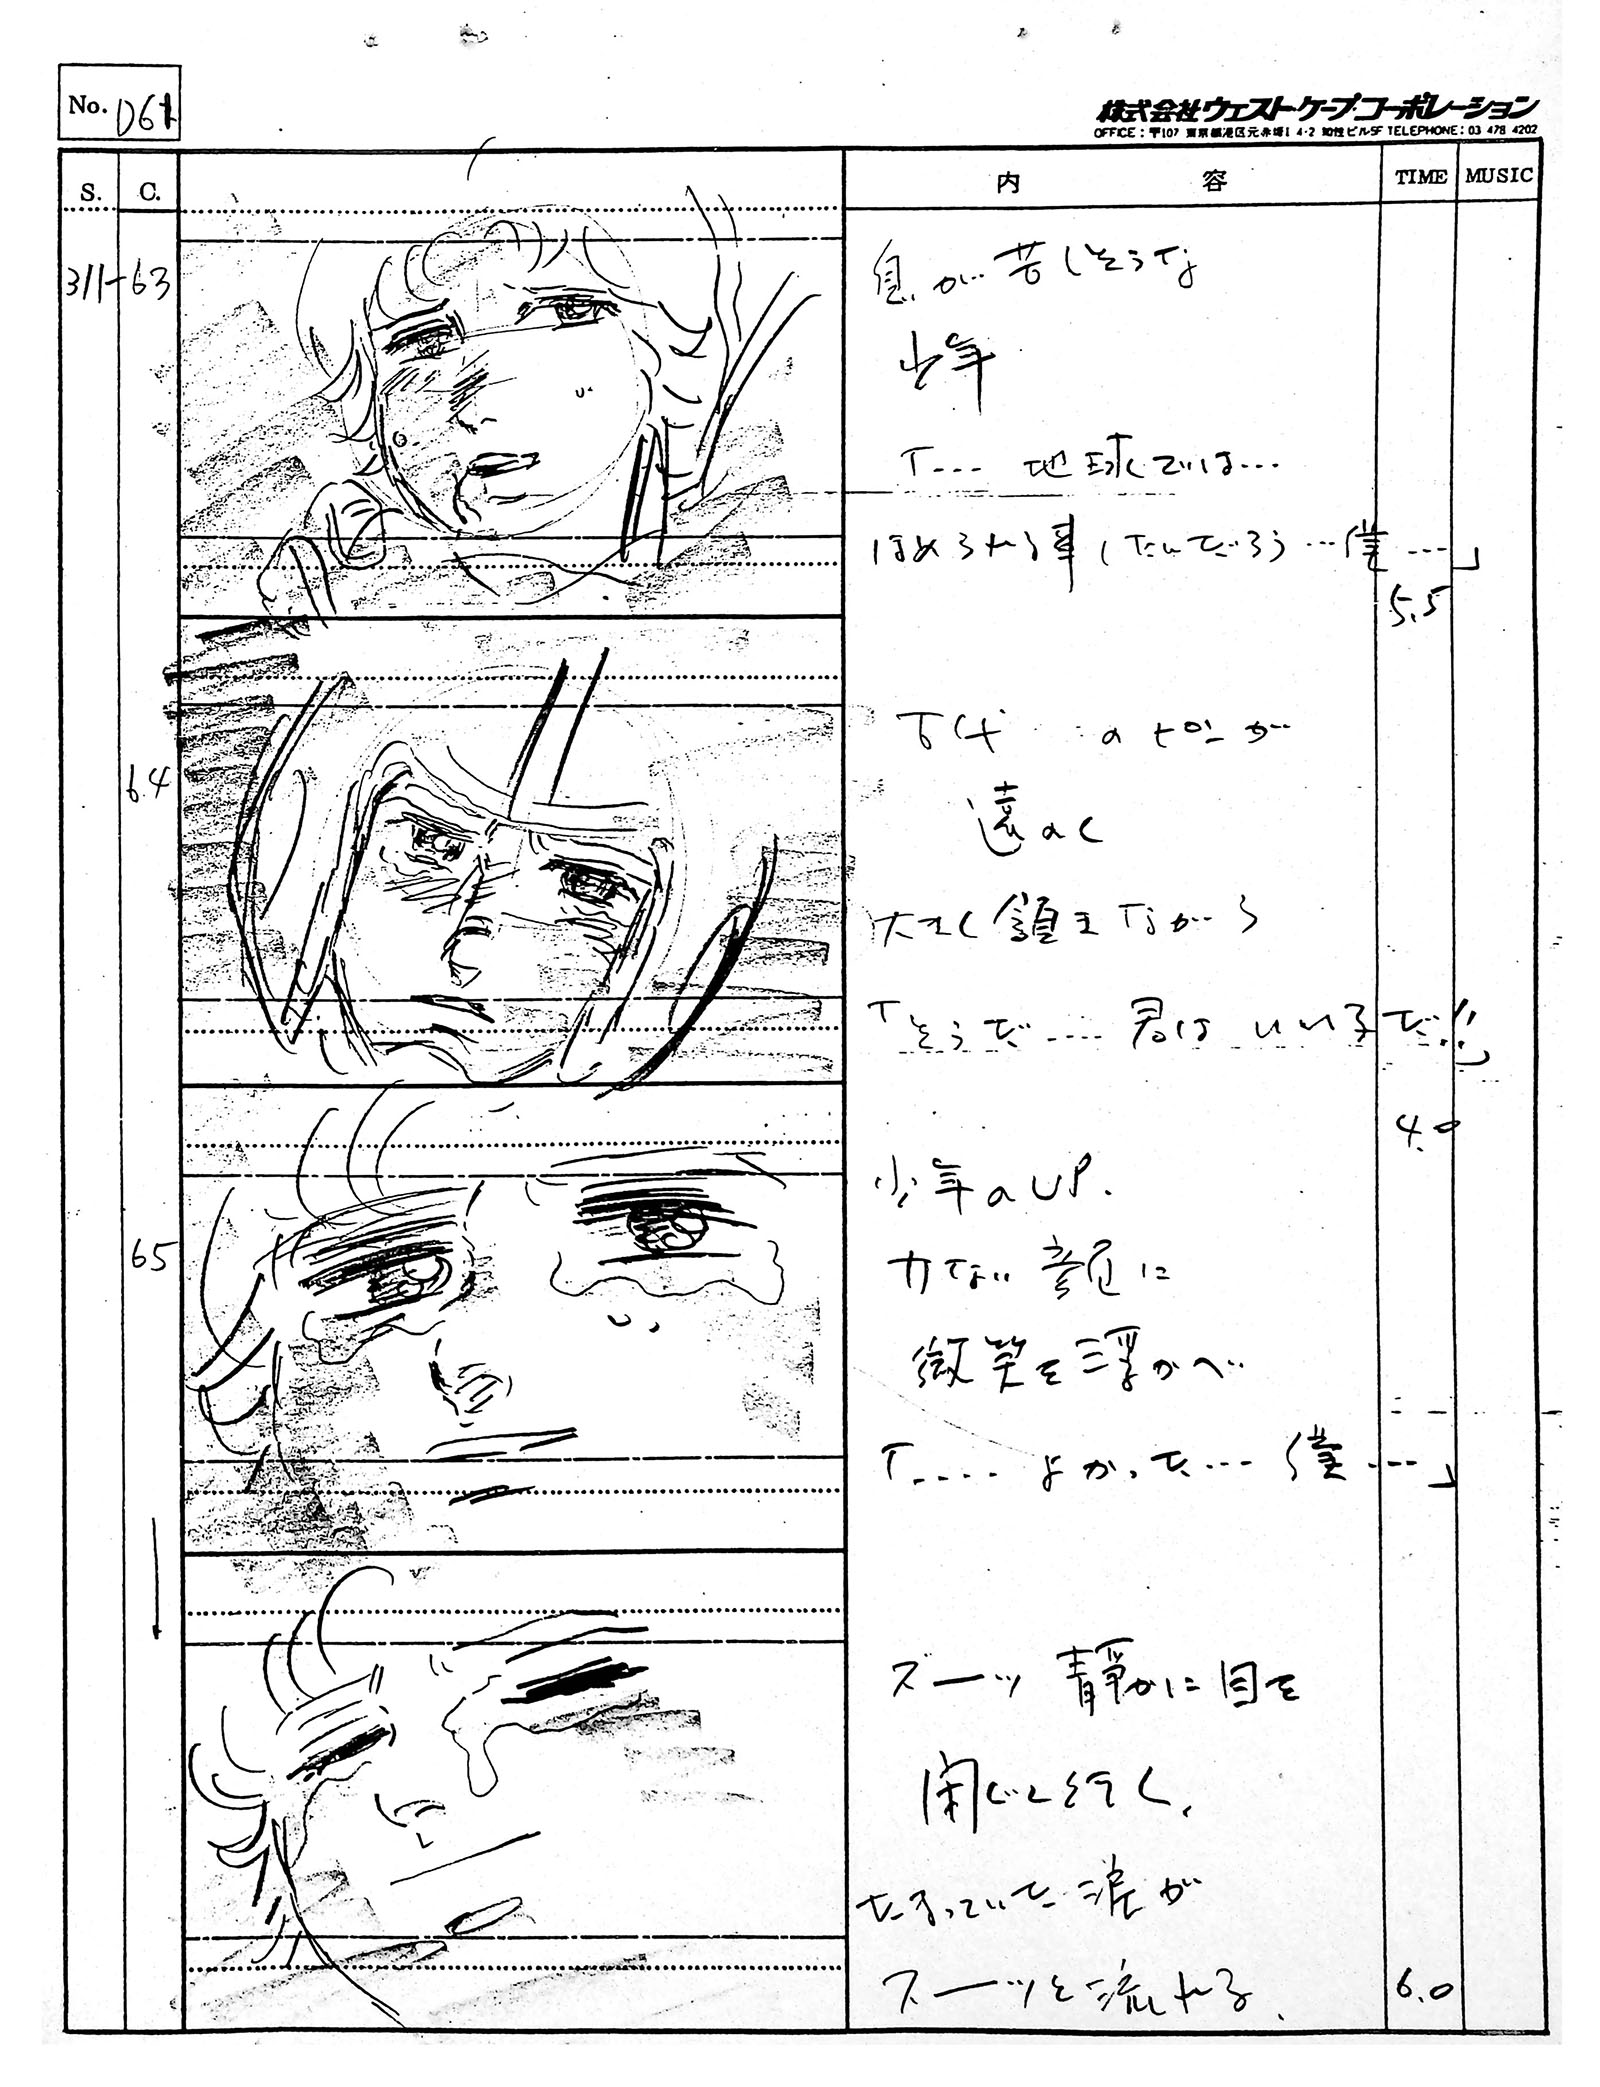 No. D61
株式会社ウェスト・ケープ・コーポレーション
OFFICE：〒107 東京都港区元赤坂1 4-2 知性ビル5F TELEPHONE：03 478 4202
S. C. 内容 TIME MUSIC
311-63
息が苦しそうな
少年
「... 地球では...
ほめられる事したんだろう...僕...」
5.5
64
古代 のセロンが
遠のく
大きく頷きながら
「そうだ.... 君は いい子だ!!」
4.0
65
少年のUP.
力ない顔に
微笑を浮かべ
「.... よかった... 僕...」
ズーッ 静かに目を
閉じて行く、
たまっていた涙が
スーッと流れる、
6.0